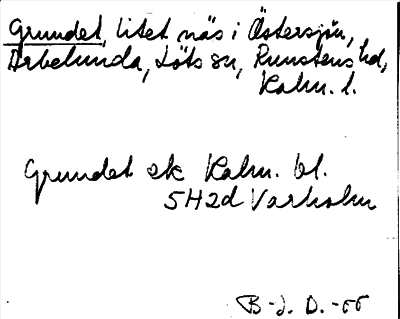 Grundet, litet näs i Östersjön,
Arbelunda, Löts sn, Runstens hd,
Kalm. l.
Grundet ek Kalm. bl.
5H2d Varholm
B-J. D. -55